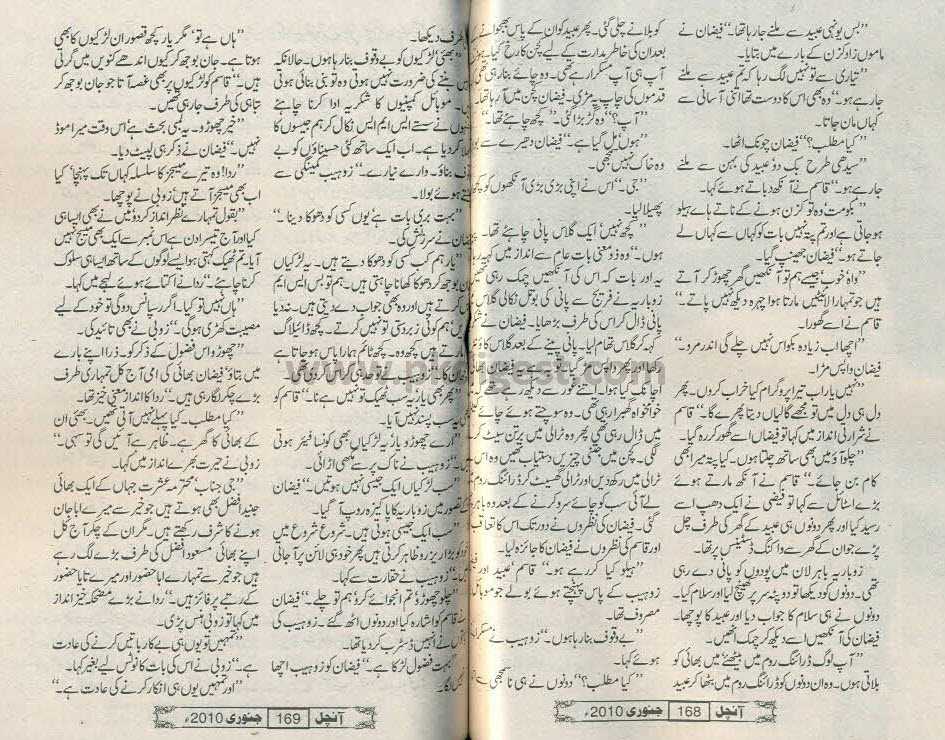 ”بس یونہی عبید سے ملنے جا رہا تھا۔“ فیضان نے
ماموں زاد کزن کے بارے میں بتایا۔
”تیاری سے تو نہیں لگ رہا کہ تم عبید سے ملنے
جا رہے ہو۔“ وہ بھی اس کا دوست تھا اتنی آسانی سے
کہاں مان جاتا۔
”کیا مطلب؟“ فیضان چونک اٹھا۔
”سیدھی طرح بک دو عبید کی بہن سے ملنے
جا رہے ہو۔“ قاسم نے آنکھ دباتے ہوئے کہا۔
”بکومت‘ وہ تو کزن ہونے کے ناتے ہائے ہیلو
ہو جاتی ہے اور تم پتہ نہیں بات کو کہاں سے کہاں لے
جاتے ہو۔“ فیضان جھینپ گیا۔
”واہ خوب جیسے ہم تو آنکھیں گھر چھوڑ کر آتے
ہیں جو تمہارا لائٹیں مارتا ہوا چہرہ دیکھ نہیں پاتے۔“
قاسم نے اسے گھورا۔
”اچھا اب زیادہ بکواس نہیں چلے گی اندر مرو۔“
فیضان واپس مڑا۔
”نہیں یار اب تیرا پروگرام کیا خراب کروں۔ پھر
دل ہی دل میں تو مجھے گالیاں دیتا پھرے گا۔“ قاسم
نے شرارتی انداز میں کہا تو فیضان اسے گھور کر رہ گیا۔
”چلو آؤ میں بھی ساتھ چلتا ہوں۔ کیا پتہ میرا بھی
کام بن جائے۔“ قاسم نے آنکھ مارتے ہوئے
بڑے اسٹائل سے کہا تو فیضی نے ایک دھپ اسے
رسید کیا اور پھر دونوں ہی عبید کے گھر کی طرف چل
پڑے جو ان کے گھر سے واکنگ ڈسٹینس پر تھا۔
زوباریہ باہر لان میں پودوں کو پانی دے رہی
تھی۔ دونوں کو دیکھا تو دوپٹہ سر پر کھینچ لیا اور سلام کیا۔
دونوں نے ہی سلام کا جواب دیا اور عبید کا پوچھا۔
فیضان کی آنکھیں اسے دیکھ کر چمک اٹھیں۔
”آپ لوگ ڈرائنگ روم میں بیٹھئے میں بھائی کو
بلاتی ہوں۔ وہ ان دونوں کو ڈرائنگ روم میں بٹھا کر عبید
کو بلانے چلی گئی۔ پھر عبید کو ان کے پاس بھجوانے کے
بعد ان کی خاطر مدارت کے لیے کچن کا رخ کیا۔
آپ ہی آپ مسکرا رہے تھی۔ وہ چائے بنا رہی تھی
قدموں کی چاپ پر مڑی۔ فیضان کچن میں آ رہا تھا۔
”آپ؟“ وہ گڑبڑا گئی۔ ”کچھ چاہئے تھا۔“
”ہوں‘ مل گیا ہے۔“ فیضان دھیرے سے بولا
وہ خاک نہیں سمجھی۔
”جی۔“ اس نے اپنی بڑی بڑی آنکھوں کو کچھ
پھیلا لیا۔
”کچھ نہیں‘ ایک گلاس پانی چاہئے تھا۔
ہوں۔“ وہ ذومعنی بات عام سے انداز میں کہہ رہا
یہ اور بات کہ اس کی آنکھیں چمک رہی تھیں
زوباریہ نے فریج سے پانی کی بوتل نکالی گلاس میں
پانی ڈال کر اس کی طرف بڑھایا۔ فیضان نے
کہہ کر گلاس تھام لیا۔ پانی پینے کے بعد گلاس کاؤنٹر پر
رکھا اور پھر واپس مڑ گیا
اچانک کیا ہوا۔ اتنے غور سے دیکھ رہے تھے
خوامخواہ گھبرا رہی تھی۔ وہ سوچتے ہوئے چائے
میں ڈال رہی تھی پھر وہ ٹرالی میں برتن سیٹ کرنے
لگی۔ کچن میں جتنی چیزیں دستیاب تھیں وہ اس نے
ٹرالی میں رکھ دیں اور ٹرالی گھسیٹ کر ڈرائنگ روم میں
لے آئی سب کو چائے سرو کرنے کے بعد وہ باہر
گئی۔ فیضان کی نظروں نے دور تک اس کا تعاقب
اور قاسم کی نظروں نے فیضان کا جائزہ لیا۔
”ہیلو کیا کر رہے ہو۔“ قاسم‘ عبید اور
زوہیب کے پاس پہنچتے ہوئے بولے جو موبائل
مصروف تھا۔
”بے وقوف بنا رہا ہوں۔“ زوہیب نے مسکراتے
ہوئے کہا۔
”کیا مطلب؟“ دونوں نے ہی ناسمجھی سے
آنچل 168 جنوری 2010ء
طرف دیکھا۔
”بھئی لڑکیوں کو بے وقوف بنا رہا ہوں۔ حالانکہ
بننے کی ضرورت نہیں ہوتی وہ تو بنی بنائی ہوتی
ہیں۔ موبائل کمپنیوں کا شکریہ ادا کرنا چاہئے
جنہوں نے سستے ایس ایم ایس نکال کر ہم جیسوں کا
بھلا کر دیا ہے۔ اب ایک ساتھ کئی حسیناؤں کو بے
وقوف بناؤ۔ وارے نیارے۔“ زوہیب کمینگی سے
ہنستے ہوئے بولا۔
”بہت بری بات ہے یوں کسی کو دھوکا دینا۔“
فیضان نے سرزنش کی۔
”یار ہم کب کسی کو دھوکا دیتے ہیں۔ یہ لڑکیاں
جان بوجھ کر دھوکا کھانا چاہتی ہیں۔ ہم تو بس ایس ایم
ایس کرتے ہیں اور وہ بھی جواب دے دیتی ہیں۔ خدایا
ہم کوئی زبردستی تو نہیں کرتے۔ کچھ ڈائیلاگ
مارتے ہیں کچھ وہ۔ کچھ ٹائم ہمارا پاس ہو جاتا ہے
”پھر بھی یار یہ سب ٹھیک تو نہیں ہے نا۔“ قاسم کو
یہ سب پسند نہیں آیا۔
”ارے چھوڑو یار یہ لڑکیاں بھی کونسا فیئر ہوتی
ہیں۔“ زوہیب نے ناک پر سے مکھی اڑائی۔
”سب لڑکیاں ایک جیسی نہیں ہوتیں۔“ فیضان
کے تصور میں زوباریہ کا پاکیزہ روپ آ گیا۔
”سب ایک جیسی ہوتی ہیں۔ شروع شروع میں
تو بڑا ریزرو ظاہر کرتی ہیں پھر خود ہی لائن پر آ جاتی
ہیں۔“ زوہیب نے حقارت سے کہا۔
”چلو چھوڑو‘ تم انجوائے کرو‘ ہم تو چلے۔“ فیضان
نے قاسم کو اشارہ کیا اور دونوں اٹھ گئے۔ زوہیب کی
باتوں نے انہیں ڈسٹرب کر دیا تھا۔
”بہت فضول لڑکا ہے۔“ فیضان کو زوہیب اچھا
نہیں لگا۔
”ہاں ہے تو‘ مگر یار کچھ قصور ان لڑکیوں کا بھی
ہوتا ہے۔ جان بوجھ کر کیوں اندھے کنویں میں گرتی
ہیں۔“ قاسم کو لڑکیوں پر بھی غصہ آتا جو جان بوجھ کر
تباہی کی طرف جا رہی تھیں۔
”خیر چھوڑو۔ یہ لمبی بحث ہے‘ اس وقت میرا موڈ
نہیں۔“ فیضان نے ذکر ہی لپیٹ دیا۔
”ردا‘ وہ تیرے میسجز کا سلسلہ کہاں تک پہنچا‘ کیا
اب بھی میسجز آتے ہیں زوبی نے پوچھا۔
”بقول تمہارے نظر انداز کر دو میں نے بھی ایسا ہی
کیا اور آج تیسرا دن ہے اس نمبر سے ایک بھی میسج نہیں
آیا۔ تم ٹھیک کہتی ہو ایسے لوگوں کے ساتھ ایسا ہی سلوک
کرنا چاہئے۔“ ردا نے اکتائے ہوئے لہجے میں کہا۔
”ہاں نہیں تو کیا۔ اگر رسپانس دو گی تو خود کے لیے
مصیبت کھڑی ہو گی۔“ زوبی نے بھی تائید کی۔
”چھوڑو اس فضول کے ذکر کو۔ ذرا اپنے بارے
میں بتاؤ‘ فیضان بھائی کی امی آج کل تمہاری طرف
بڑے چکر لگا رہی ہیں۔“ ردا کا انداز معنی خیز تھا۔
”کیا مطلب۔ کیا پہلے نہیں آتی تھیں۔ بھئی ان
کے بھائی کا گھر ہے۔ ظاہر ہے آئیں گی تو سہی۔“
زوبی نے حیرت بھرے انداز میں کہا۔
”جی جناب‘ محترمہ عشرت جہاں کے ایک بھائی
جنید افضل بھی ہوتے ہیں جو خیر سے میرے ابا جان
ہونے کا شرف رکھتے ہیں۔ مگر ان کے چکر آج کل
اپنے بھائی مسعود افضل کی طرف بڑے لگ رہے
ہیں جو خیر سے تمہارے ابا حضور اور میرے تایا حضور
کے رتبے پر فائز ہیں۔“ ردا نے بڑے مضحکہ خیز انداز
میں کہا تو زوبی ہنس پڑی۔
”تمہیں تو یوں ہی بے کار باتیں کرنے کی عادت
ہے۔“ زوبی نے اس کی بات کا نوٹس لیے بغیر کہا۔
”اور تمہیں یوں ہی انکار کرنے کی عادت ہے۔“
آنچل 169 جنوری 2010ء